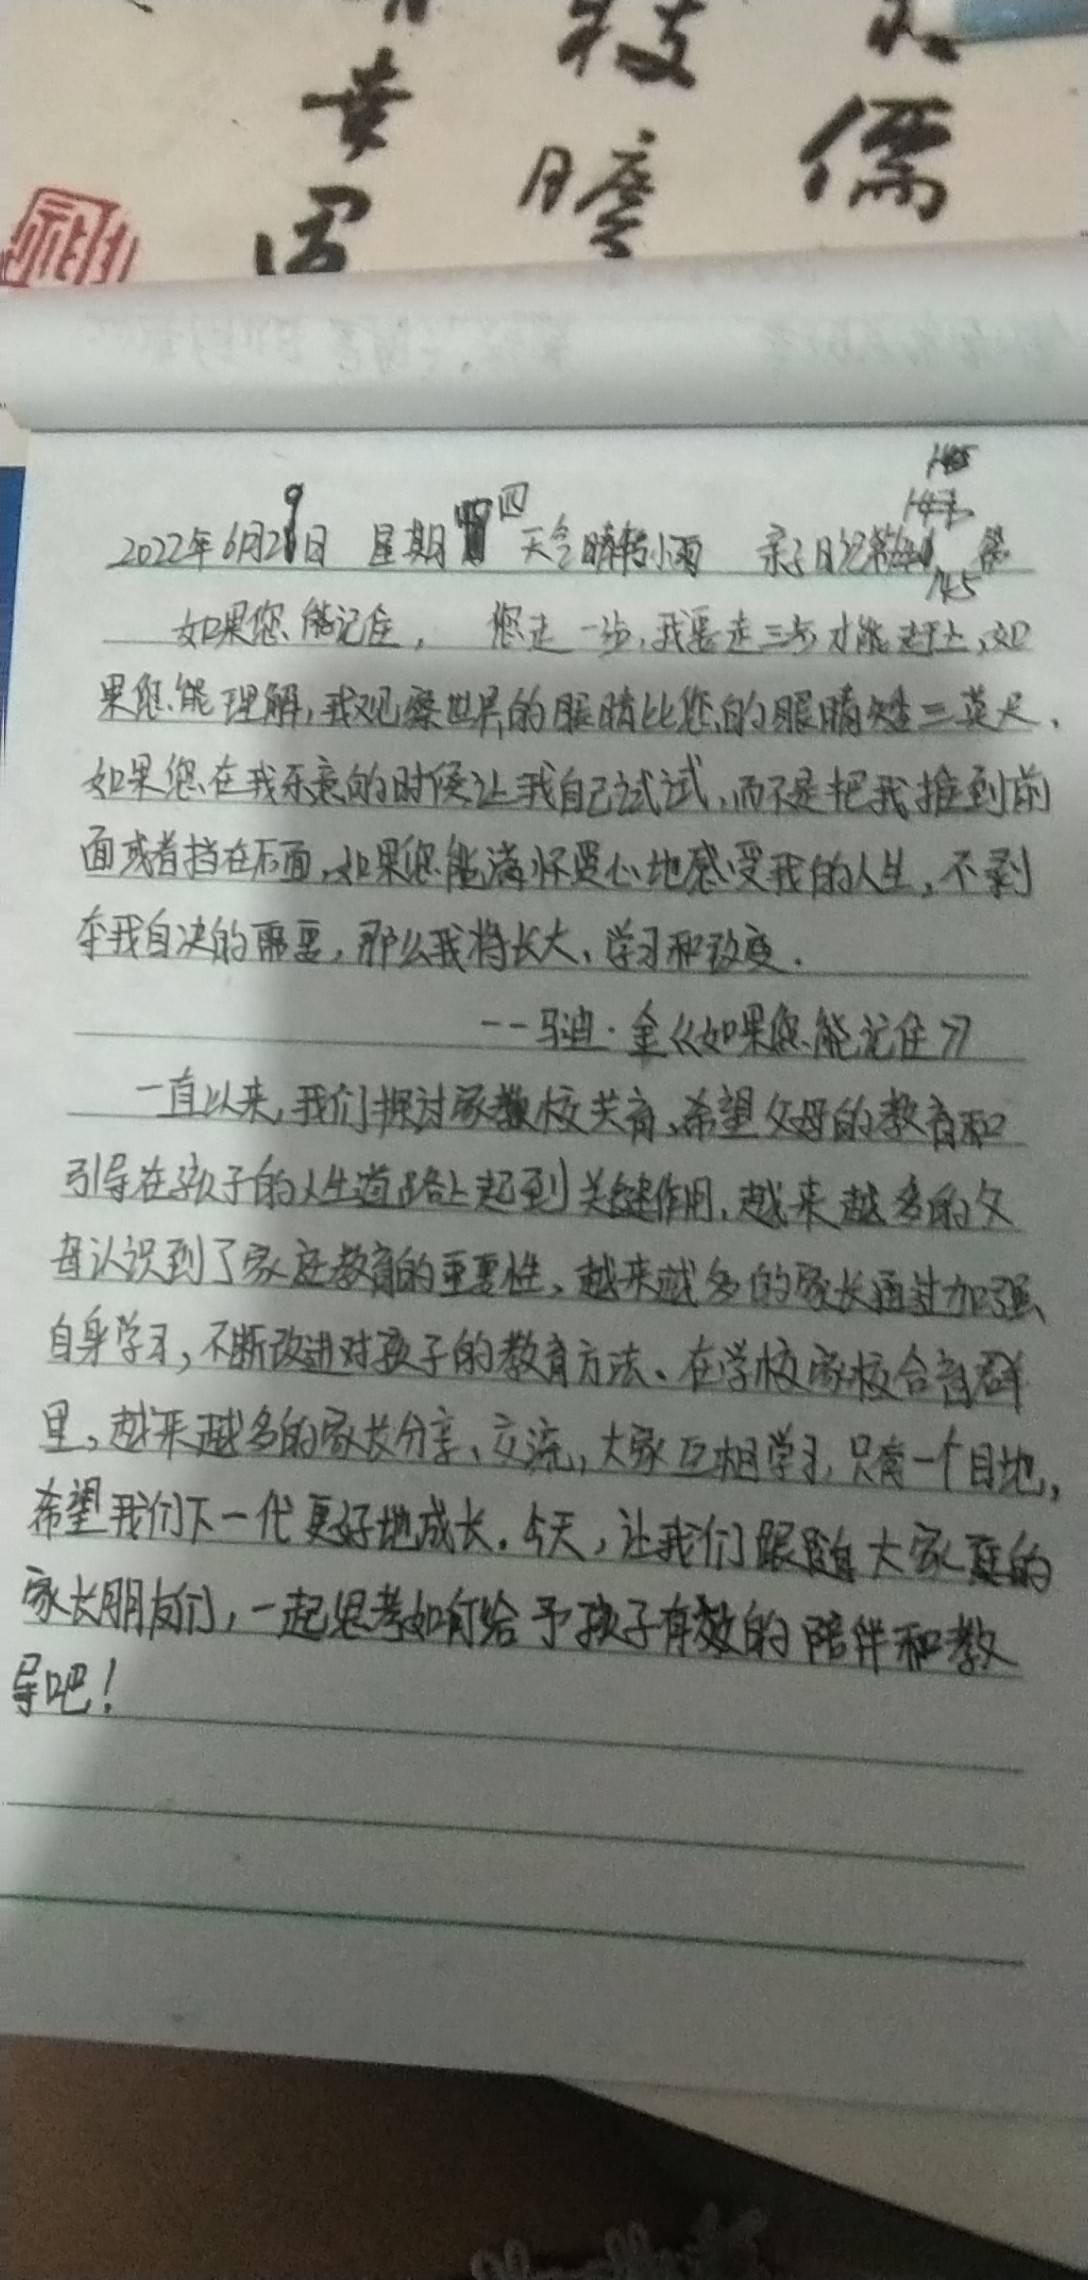 黄
枝
儒
瞻
2022年6月29日 星期四 天气晴转小雨 亲子日记 145
如果您能记住, 您走一步,我要走三步才能赶上,如
果您能理解,我观察世界的眼睛比您的眼睛矮三英尺、
如果您在我乐意的时候让我自己试试,而不是把我推到前
面或者挡在后面,如果您能满怀爱心地感受我的人生,不剥
夺我自决的需要,那么我将长大、学习和改变.
——马迪·金《如果您能记住》
一直以来,我们探讨家校共育、希望父母的教育和
引导在孩子的人生道路上起到关键作用,越来越多的父
母认识到了家庭教育的重要性、越来越多的家长通过加强
自身学习,不断改进对孩子的教育方法、在学校家校合育群
里,越来越多的家长分享、交流,大家互相学习,只有一个目地,
希望我们下一代更好地成长.今天,让我们跟随大家庭的
家长朋友们,一起思考如何给予孩子有效的陪伴和教
导吧!